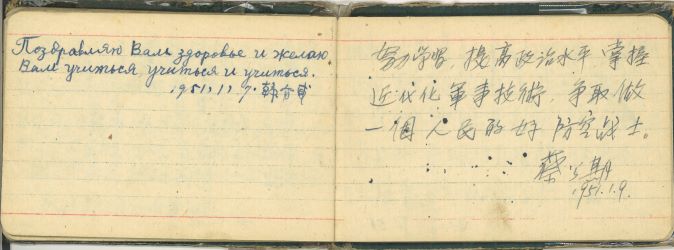 Поздравляю Вам здоровье и желаю
Вам учиться учиться и учиться.
1951.1.9.
努力学習，提高政治水平 掌握
近代化軍事技術，争取做
一個人民的好防空战士。
1951.1.9.